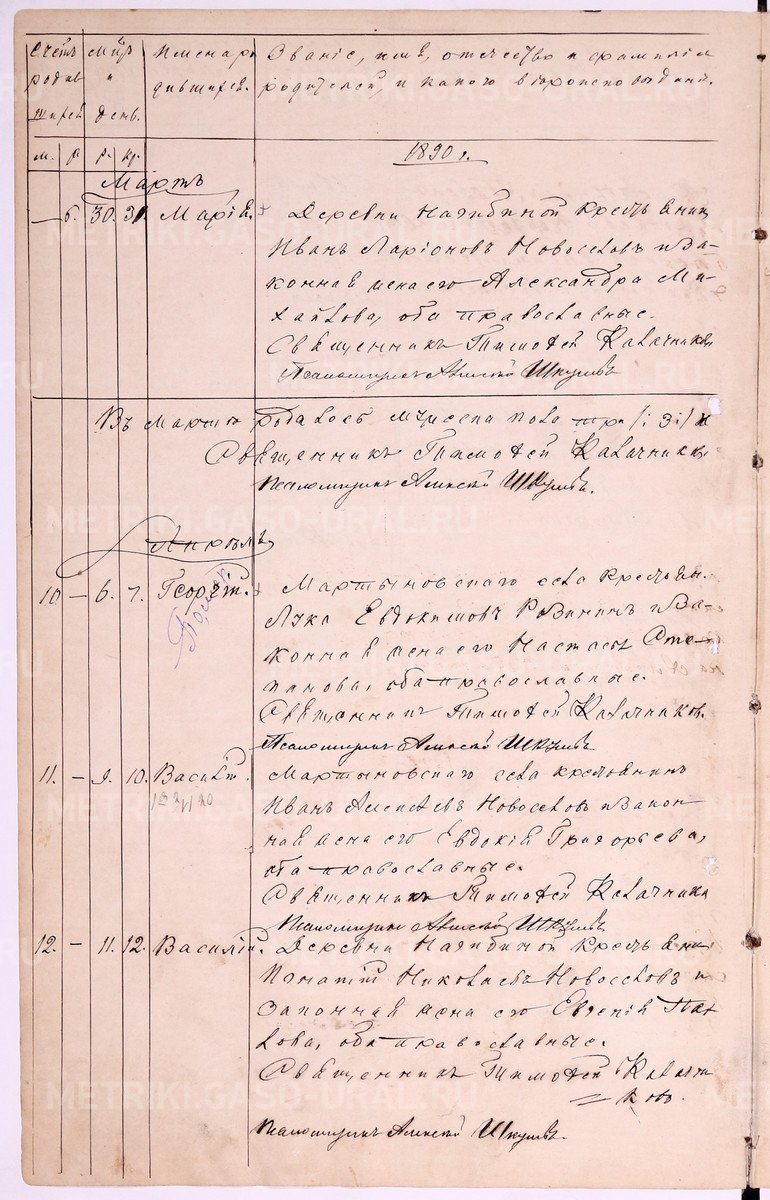 Счетъ родив шихся
Мѣц. и день.
Имена ро дившихся.
Званіе, имя, отчество и фамилія
родителей, и какого вѣроисповѣданія.
м. ж. р. кр.
1890 г.
Мартъ
— 6. 30. 31. Марія. Деревни Нагибиной крестьянинъ
Иванъ Ларіоновъ Новоселовъ и за-
конная жена его Александра Ми-
хайлова, оба православные.
Священникъ Тимофей Калачниковъ
Псаломщикъ Алексѣй
Въ Мартѣ родилось мужеска пола три /: 3 :/ и
Священникъ Тимофей Калачниковъ
Псаломщикъ Алексѣй
Апрѣль
10 — 6. 7. Георгій. Мартыновскаго села крестьян.
Лука Евдокимовъ и за-
конная жена его Настасья Сте-
панова, оба православные.
Священникъ Тимофей Калачниковъ.
Псаломщикъ Алексѣй
11. — 9. 10. Василій. Мартыновскаго села крестьянинъ
Иванъ Алексѣевъ Новоселовъ и закон-
ная жена его Евдокія Григорьева,
оба православные.
Священникъ Тимофей Калачников
Псаломщикъ Алексѣй
12. — 11. 12. Василій. Деревни Нагибиной крестьянин
Игнатій Николаевъ Новоселовъ и
законная жена его Евгенія Пав
лова, оба православные.
Священникъ Тимофей Калачни
= ковъ.
Псаломщикъ Алексѣй
METRIKI.GASO-URAL.RU